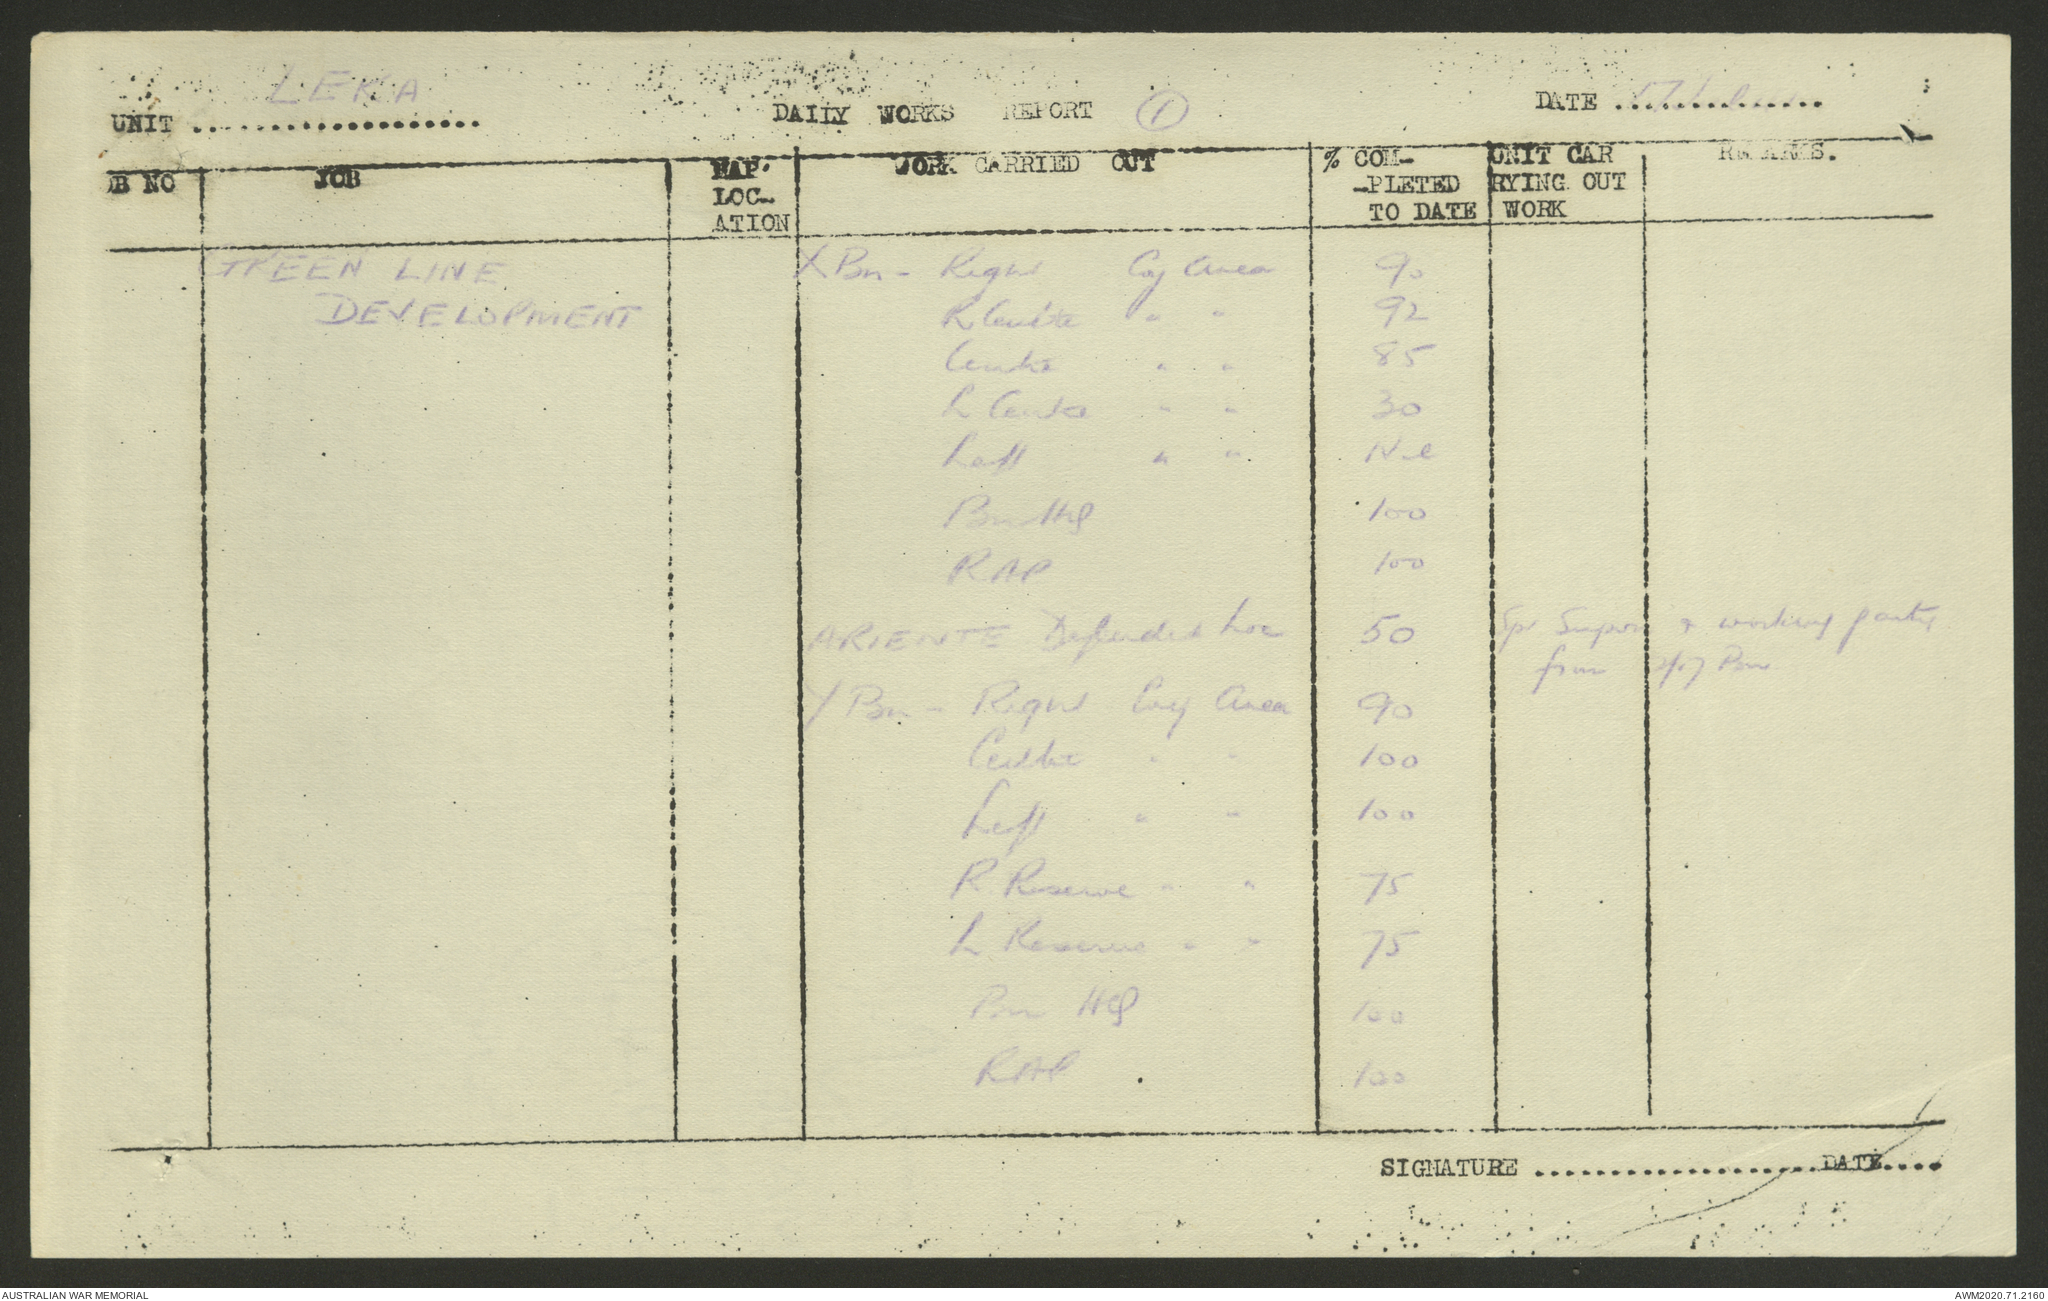 LEKA
UNIT ....................
DAILY WORKS REPORT (1)
DATE ...............
OB NO JOB MAP LOC- ATION WORK CARRIED OUT % COM- -PLETED TO DATE UNIT CAR RYING OUT WORK REMARKS.
GREEN LINE DEVELOPMENT
X Bn - Right Coy Area 90
R Centre " " 92
Centre " " 85
L Centre " " 30
Left " " Nil
Bn HQ 100
RAP 100
ARIENTE Defended Loc 50 Spr Supvn & working party
from 2/17 Bn
Y Bn - Right Coy Area 90
Centre " " 100
Left " " 100
R Reserve " " 75
L Reserve " " 75
Bn HQ 100
RAP 100
SIGNATURE ....................DATE.....
AUSTRALIAN WAR MEMORIAL
AWM2020.71.2160